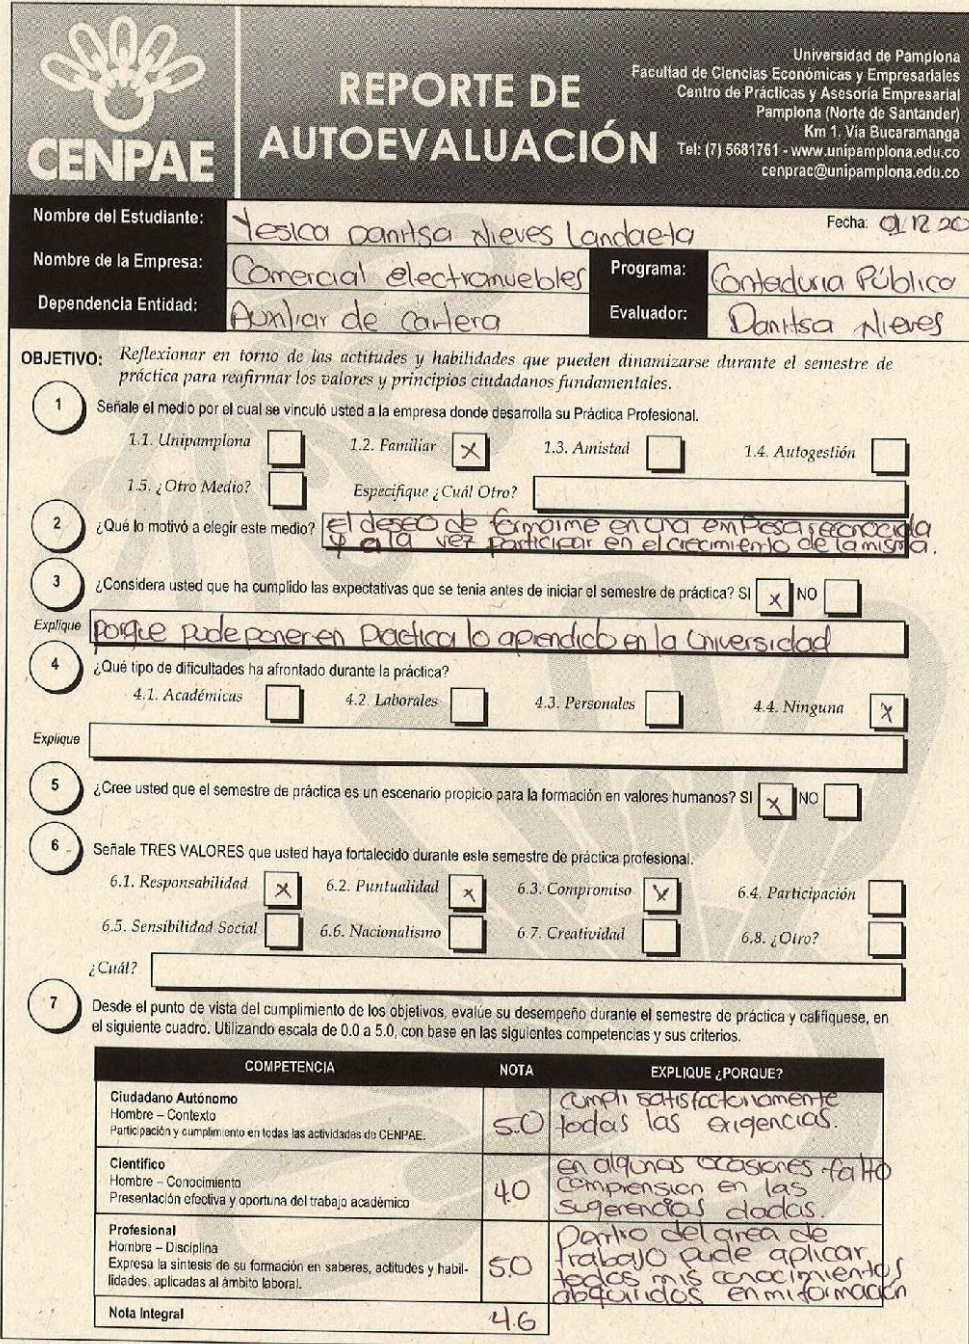 CENPAE
REPORTE DE
AUTOEVALUACIÓN
Universidad de Pamplona
Facultad de Ciencias Económicas y Empresariales
Centro de Prácticas y Asesoría Empresarial
Pamplona (Norte de Santander)
Km 1. Via Bucaramanga
Tel: (7) 5681761 - www.unipamplona.edu.co
cenprac@unipamplona.edu.co
Nombre del Estudiante: Yesica Danitsa Nieves Landaeta Fecha: 01 12 20
Nombre de la Empresa: Comercial electromuebles Programa: Contaduria Público
Dependencia Entidad: Auxliar de Cartera Evaluador: Danitsa Nieves
OBJETIVO: Reflexionar en torno de las actitudes y habilidades que pueden dinamizarse durante el semestre de
práctica para reafirmar los valores y principios ciudadanos fundamentales.
1 Señale el medio por el cual se vinculó usted a la empresa donde desarrolla su Práctica Profesional.
1.1. Unipamplona 1.2. Familiar X 1.3. Amistad 1.4. Autogestión
1.5. ¿Otro Medio? Especifique ¿Cuál Otro?
2 ¿Qué lo motivó a elegir este medio? El deseo de formarme en una empresa reconocida
y a la vez participar en el crecimiento de la misma.
3 ¿Considera usted que ha cumplido las expectativas que se tenia antes de iniciar el semestre de práctica? SI X NO
Explique porque pude poner en practica lo aprendido en la Universidad
4 ¿Qué tipo de dificultades ha afrontado durante la práctica?
4.1. Académicas 4.2. Laborales 4.3. Personales 4.4. Ninguna X
Explique
5 ¿Cree usted que el semestre de práctica es un escenario propicio para la formación en valores humanos? SI X NO
6 Señale TRES VALORES que usted haya fortalecido durante este semestre de práctica profesional.
6.1. Responsabilidad X 6.2. Puntualidad X 6.3. Compromiso X 6.4. Participación
6.5. Sensibilidad Social 6.6. Nacionalismo 6.7. Creatividad 6.8. ¿Otro?
¿Cuál?
7 Desde el punto de vista del cumplimiento de los objetivos, evalúe su desempeño durante el semestre de práctica y califíquese, en
el siguiente cuadro. Utilizando escala de 0.0 a 5.0, con base en las siguientes competencias y sus criterios.
COMPETENCIA NOTA EXPLIQUE ¿PORQUE?
Ciudadano Autónomo
Hombre – Contexto
Participación y cumplimiento en todas las actividades de CENPAE.
5.0
Cumpli satisfactoriamente
todas las exigencias.
Científico
Hombre – Conocimiento
Presentación efectiva y oportuna del trabajo académico
4.0
en algunas ocasiones falto
comprension en las
sugerencias dadas.
Profesional
Hombre – Disciplina
Expresa la síntesis de su formación en saberes, actitudes y habil-
lidades, aplicadas al ámbito laboral.
5.0
Dentro del area de
trabajo pude aplicar
todos mis conocimientos
abquiridos en mi formación
Nota Integral 4.6